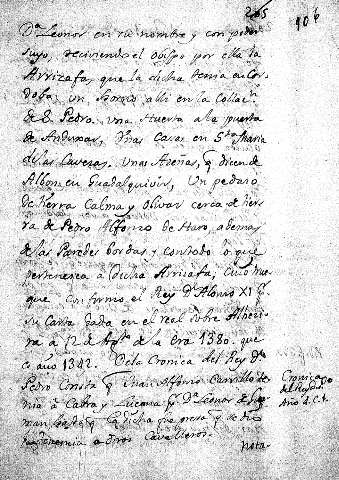 205
106
Dª Leonor en su nombre y con poder
suyo, reciviendo el obispo por ella la
Arrizafa, que la dicha tenia en Cor-
doba, un horno alli en la Collacⁿ.
de S. Pedro. Una Huerta a la puerta
de Anduxar, Unas Casas en Sta Maria
de las Caveras. Unas Azeñas, q dicen de
Albon, en Guadalquivir, Un pedazo
de tierra Calma y Olivar cerca de tier-
ra de Pedro Alfonso de Haro, ademas
de las Paredes bordas y con todo lo que
pertenence a la dicha Arrizafa; Cuio
que confirmo el Rey Dⁿ Alonso XI p.
su Carta dada en el real sobre Algeci-
ra à 12 de Agto de la Era 1380. que
es año 1342. De la Cronica del Rey Dⁿ
Pedro Consta q Juan Alfonso Carrillo te-
nia à Cabra y Lucena p Dª Leonor de Guz-
man, q la dicha fue presa y se dio
la tenencia a otros Cavalleros.
Cronica
del Rey Dⁿ
Año
Nota